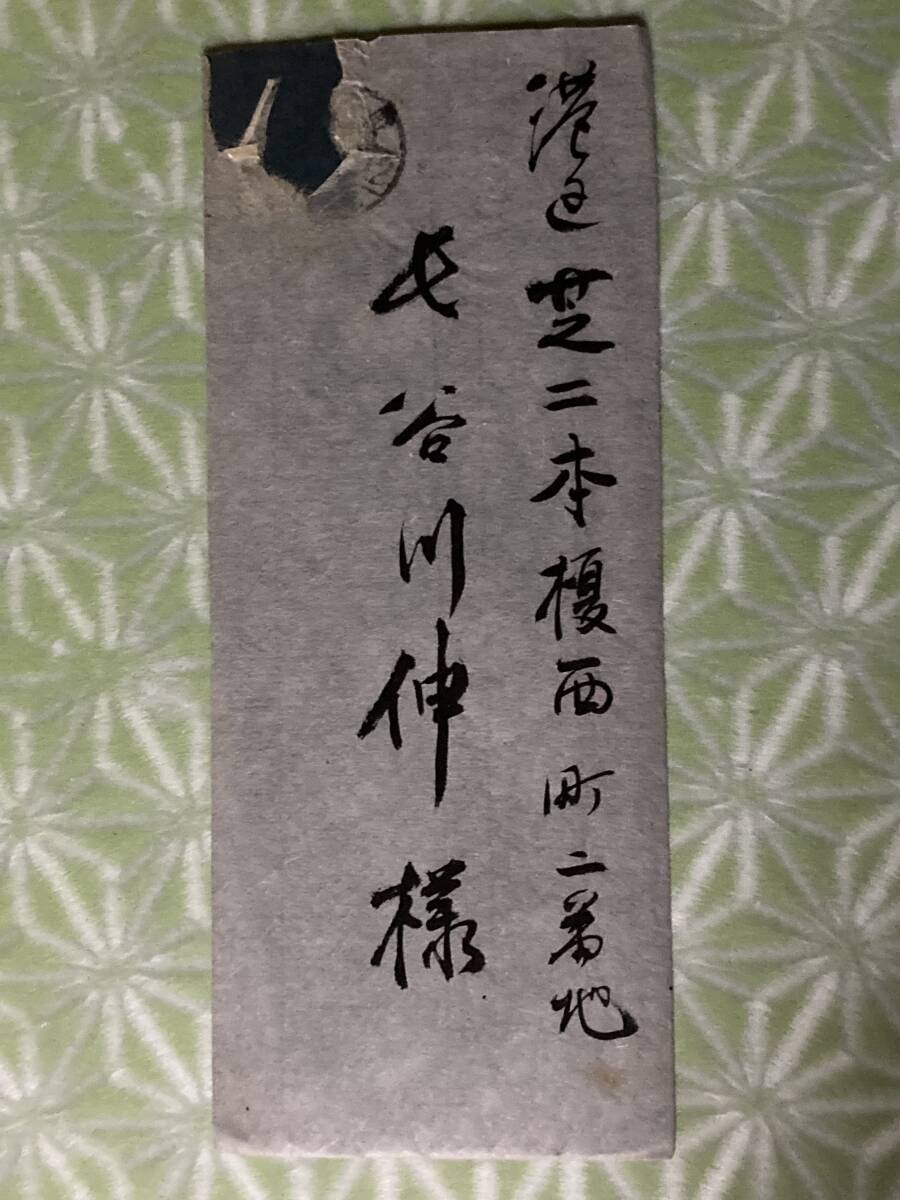 港区芝二本榎西町二番地
長谷川伸様